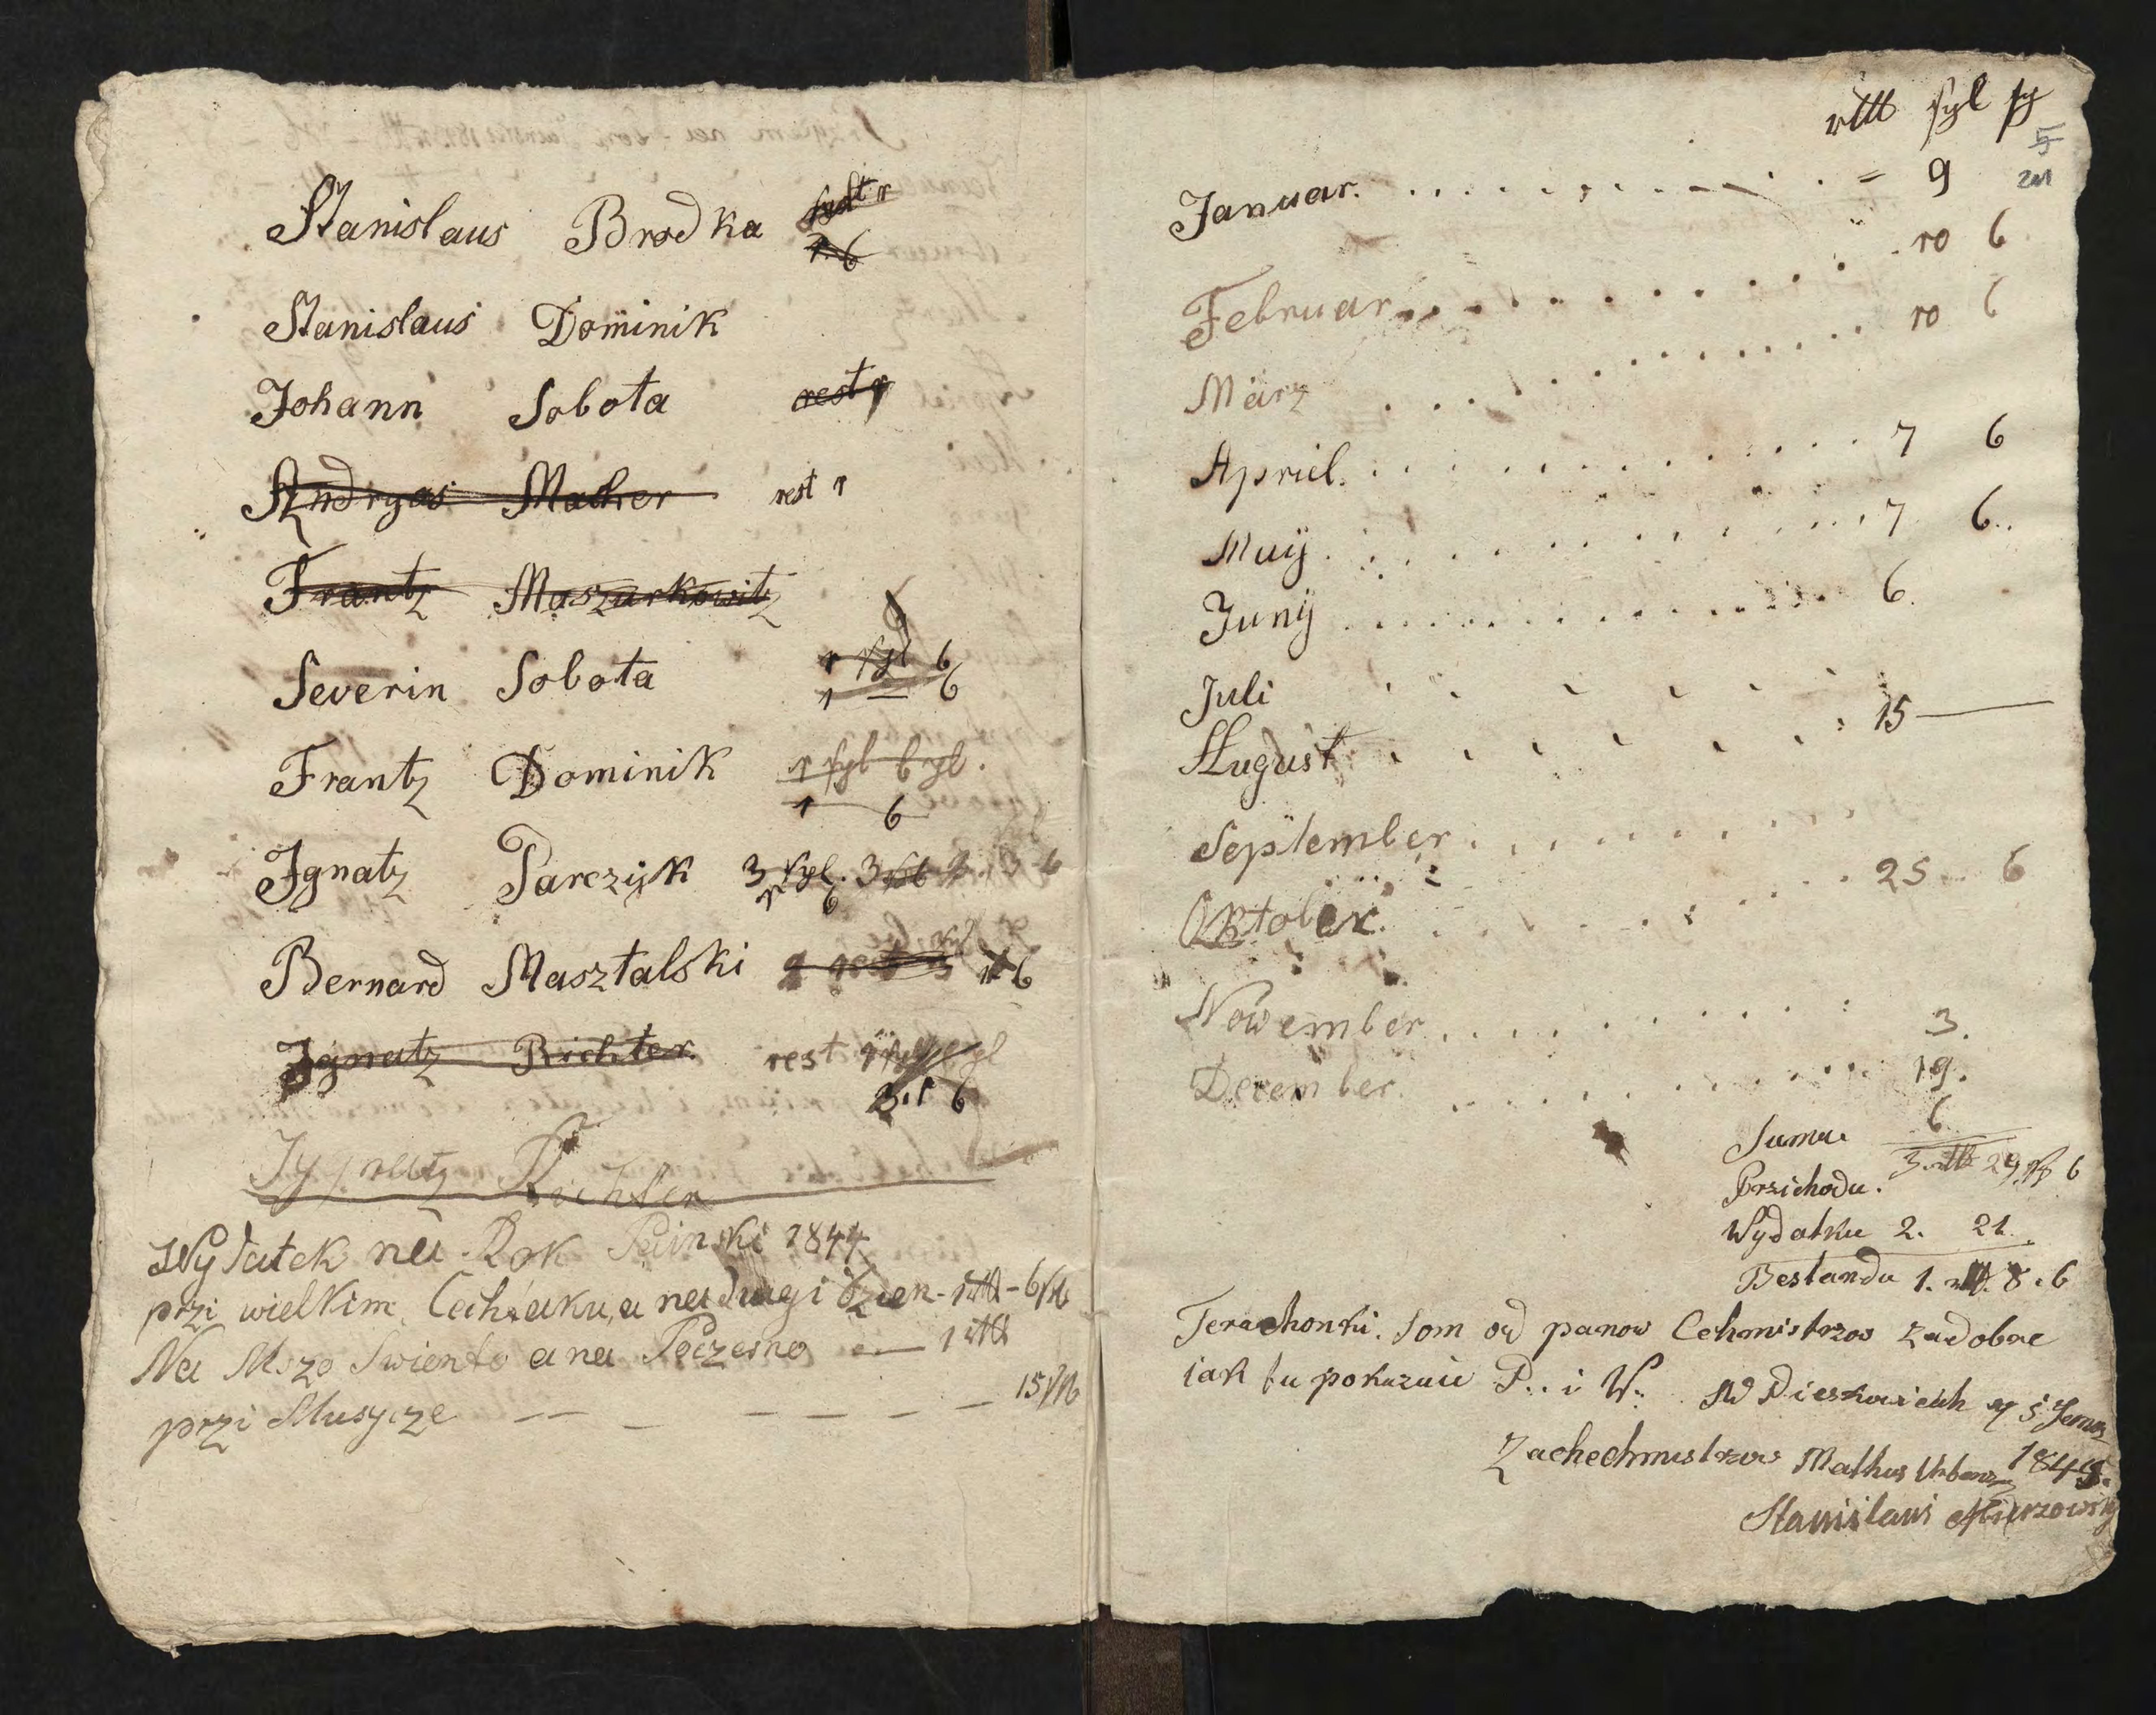 Stanislaus Brodka rest 1
1. 6
Stanislaus Dominik
Johann Sobota rest 1
Andryas Macher rest 1
Frantz Maszurkowitz
Severin Sobota 1 sgl 6
1 — 6
Frantz Dominik 1 sgl 6 gl.
1 — 6
Ignatz Parczijk 3 sgl. 3
6
Bernard Masztalski rest 3 1 6
Jgnatz Richter. rest
3. 1 6
Richter
Wydatek na Rok Painski 1844
przi wielkim Cechżaku, a na drugi dzien - 1 rttl - 6
Na Mszo Swiento a na Poczesno — 1 rttl
przi Musycze — — — — — — — 15
rttl sgl
5
Januar. = 9
Februar 10 6
März 10 6
Apriel. 7 6
Maij 7 6
Junij 6.
Juli
August 15 —
September
Oktober. 25 6
Nowember 3.
December. 19.
Suma 6
Przichodu. 3 rttl 29 6
Wydatku 2. 21.
Bestandu 1. rttl. 8. 6
Tera chonki. som od panow Cehmistrzow zadobre
iak tu pokazuie P.. i W: W Pieskowicach 5
Zachechmistrzow Mathus Urban 184
Stanislaus